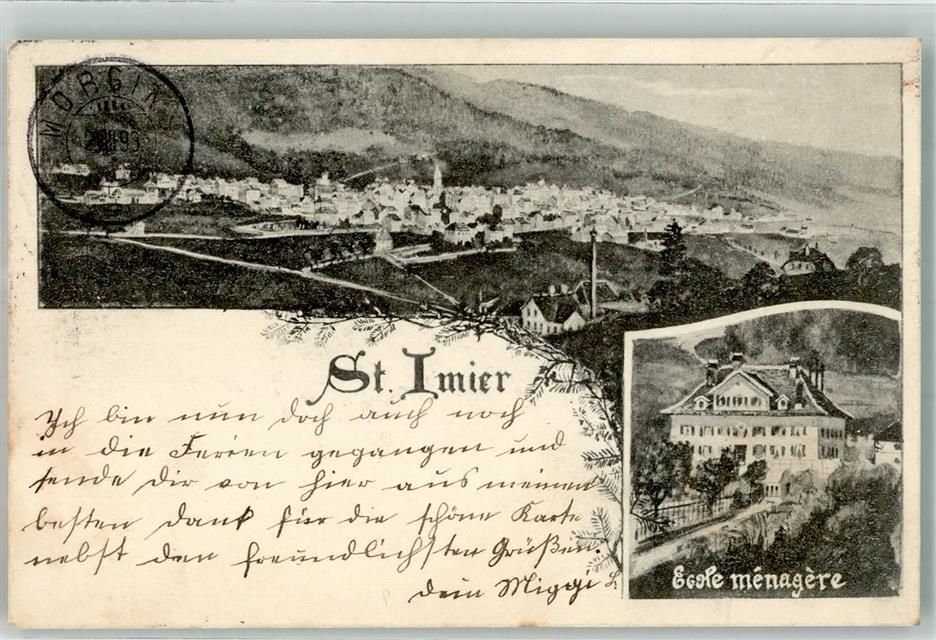 MORGINS
St. Imier
Ich bin nun doch auch noch
in die Ferien gegangen und
sende Dir von hier aus meinen
besten Dank für die schöne Karte
nebst den freundlichsten Grüßen.
Dein Miggi
Ecole ménagère